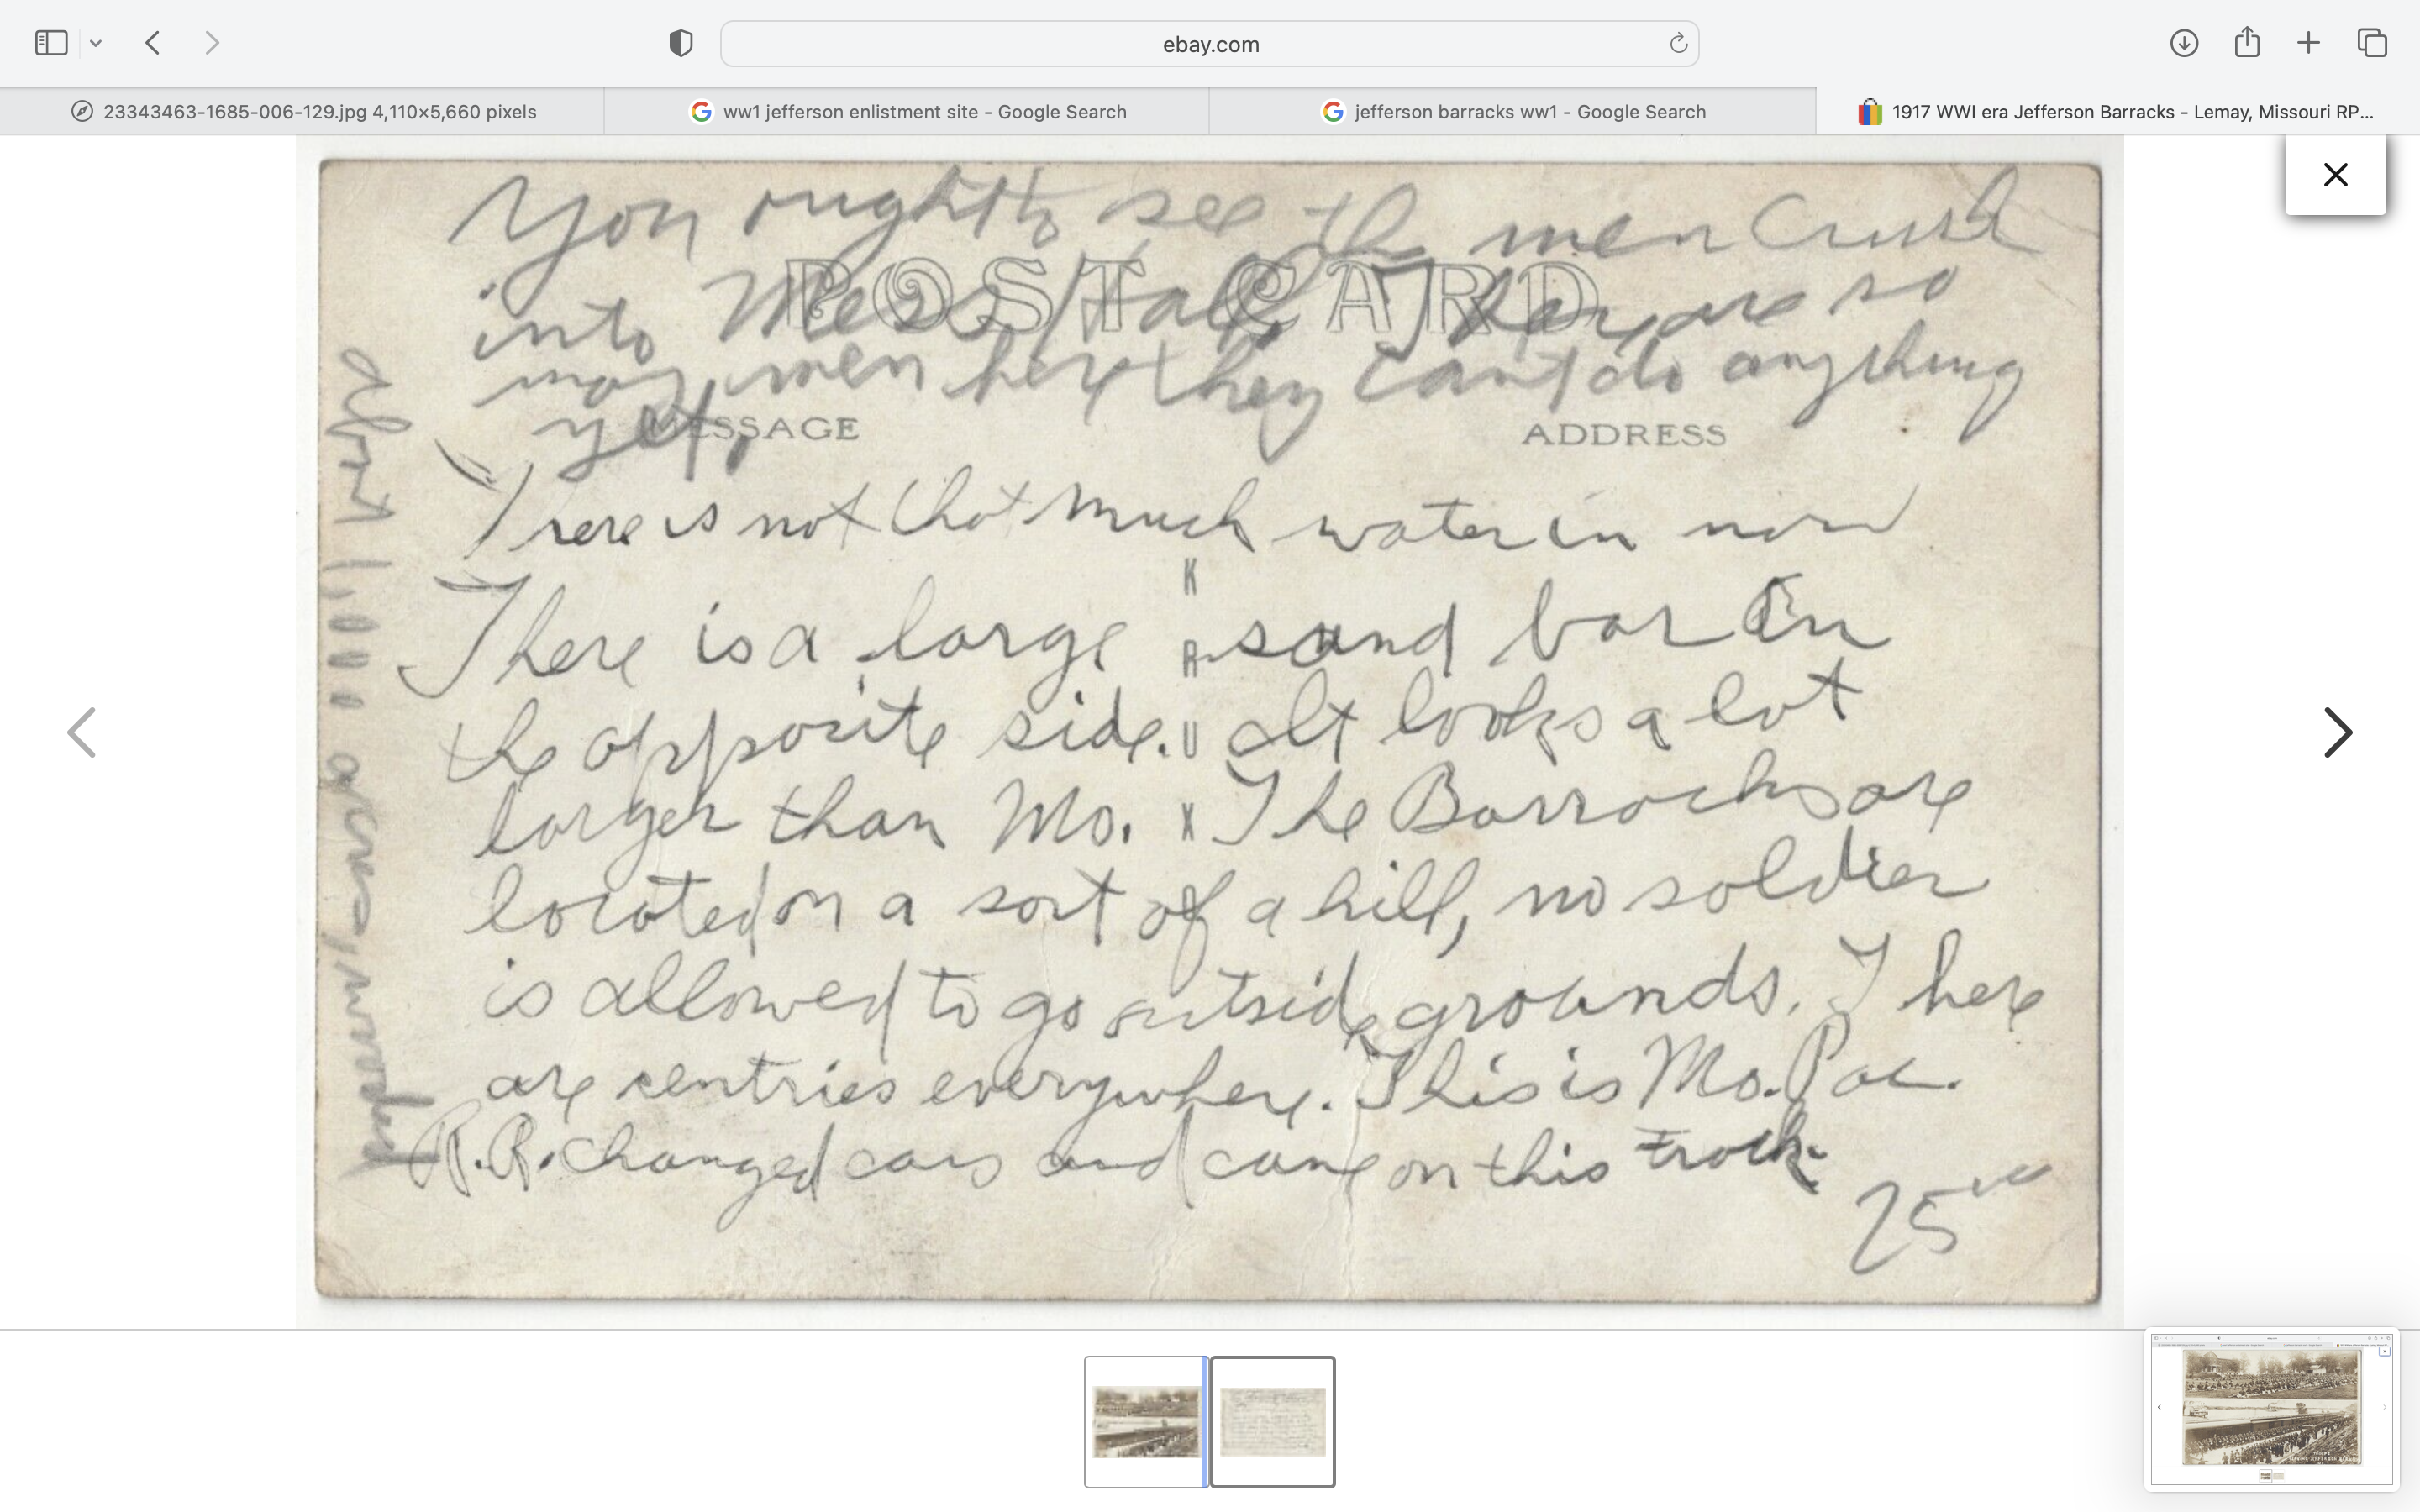 ebay.com
23343463-1685-006-129.jpg 4,110×5,660 pixels
ww1 jefferson enlistment site - Google Search
jefferson barracks ww1 - Google Search
1917 WWI era Jefferson Barracks - Lemay, Missouri RP...
You ought to see the men Crush
into Mess Hall. They are so
may men here they can't do anything
yet.
POST CARD
MESSAGE
ADDRESS
There is not that much water in now
There is a large sand bar On
the opposite side. It looks a lot
larger than Mo. The Barracks are
located on a sort of a hill, no soldier
is allowed to go outside grounds. There
are centries everywhere. This is Mo. Pac.
R.R. changed cars and came on this track.
KRUXO
25
about acres, wooded